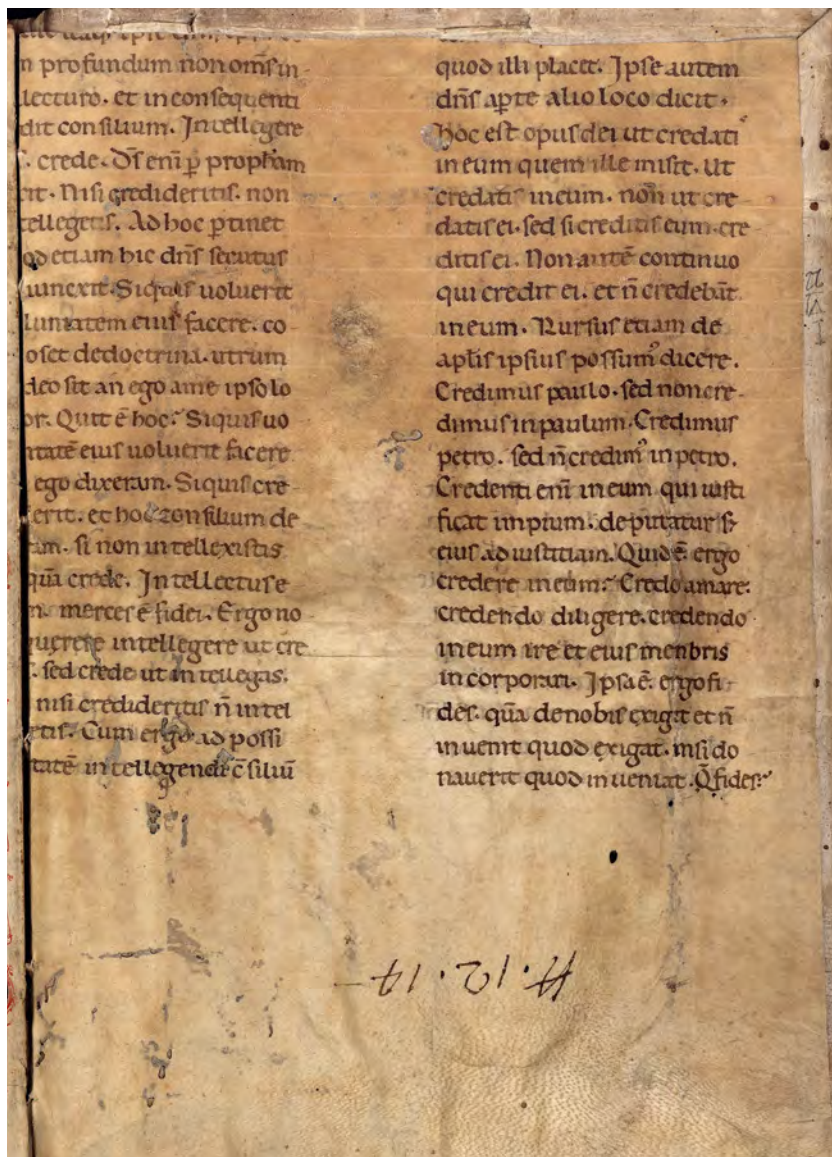 n profundum non om̄s in
lecturo. et in consequenti
dit consilium. Intellegere
. crede. D̄s eni̅ p̱ prophetam
it. Nisi credideritis. non
tellegetis. Ad hoc p̱tinet
od etiam hic dn̄s secutus
iunexit. Siquis uoluerit
luntatem eius facere. co
oscet dedoctrina. utrum
deo sit an ego ame ipso lo
or. Quit ē hoc. Siquis uo
ntatē eius uoluerit facere
ego dixeram. Siquis cre
erit. et hoc consilium de
am. si non intellexistis
quā crede. Intellectus e
m. merces ē fidei. Ergo no
querere intellegere ut cre
. sed crede ut intellegas.
nisi credideritis n̄ intel
etis. Cum ergo ad possi
tatē intellegendi c̄siliū
quod illi placet. Ipse autem
dn̄s ap̱te alio loco dicit.
hoc est opus dei ut credatis
in eum quem ille misit. Ut
credatis in eum. non ut cre
datis ei. sed si creditis eum. cre
ditis ei. Non autē continuo
qui credit ei. et n̄ credebāt
in eum. Rursus etiam de
apl̄is ipsius possum᾽ dicere.
Credimus paulo. sed non cre
dimus in paulum. Credimus
petro. sed n̄ credim᾽ in petro.
Credenti eni̅ in eum qui iusti
ficat impium. deputatur f
eius ad iustitiam. Quid ē ergo
credere in eum. Credo amare.
credendo diligere. credendo
in eum ire et eius menbris
in corporari. Ipsa ē. ergo fi
des. quā de nobis exigit et n̄
inuenit quod exigat. insi do
nauerit quod inueniat. Q̄ fides.